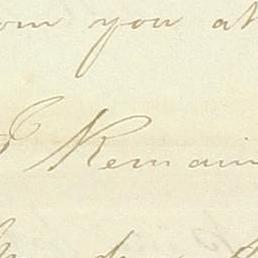 om you at
I Remain